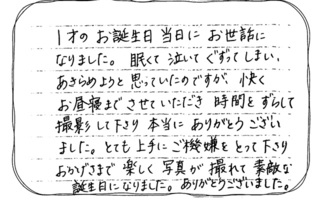 1才の お誕生日 当日に お世話に
なりました。 眠くて 泣いて ぐずってしまい、
あきらめようと 思っていたのですが、 快く
お昼寝まで させていただき 時間を ずらして
撮影して下さり 本当に ありがとうござい
ました。 とても 上手に ご機嫌を とって 下さり
おかげさまで 楽しく 写真が 撮れて 素敵な
誕生日になりました。 ありがとうございました。